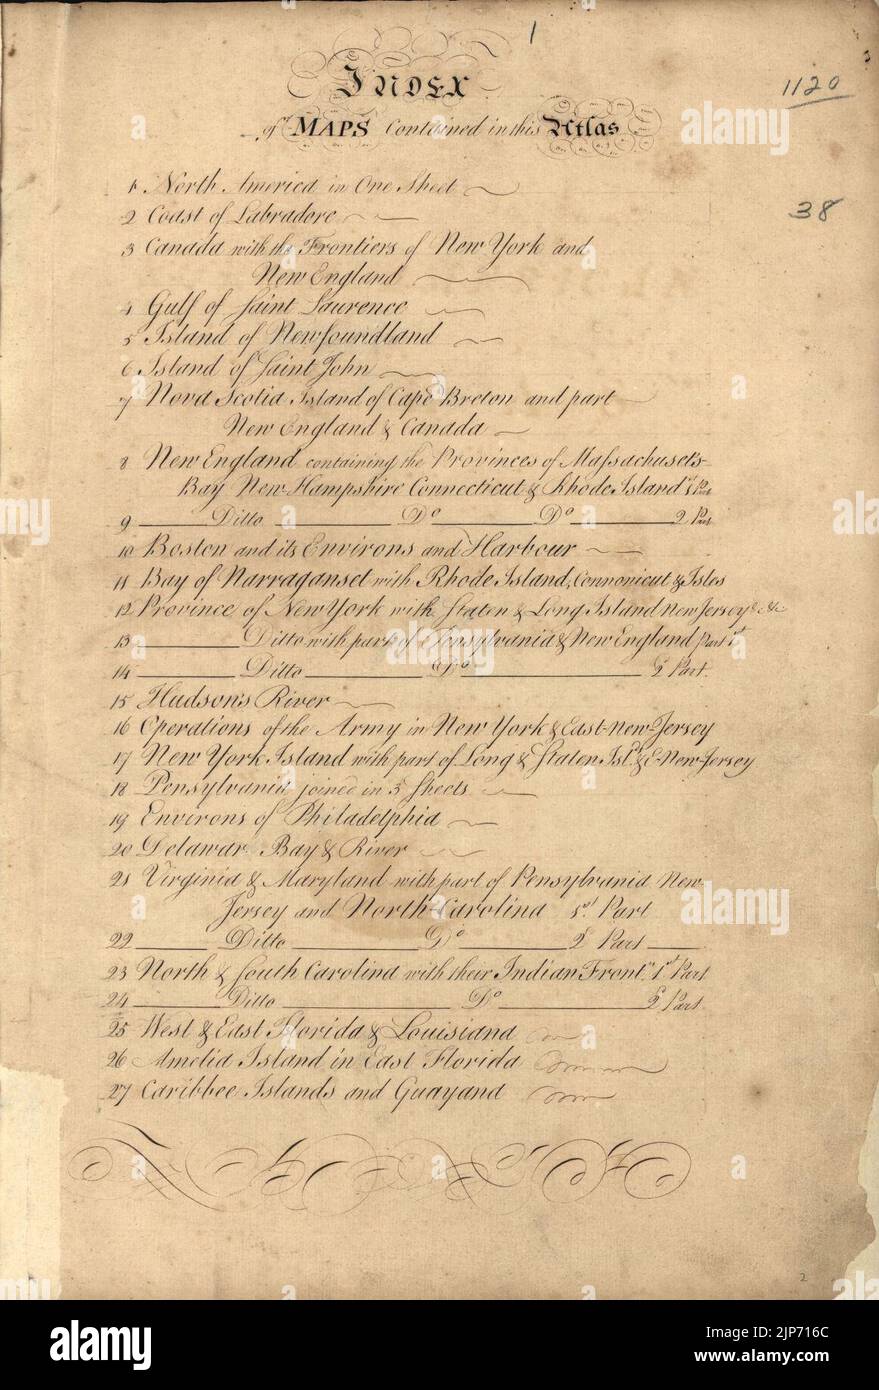 1
INDEX
1120
of MAPS Contained in this Atlas
1 North America in One Sheet
2 Coast of Labradore
38
3 Canada with the Frontiers of New York and
New England
4 Gulf of Saint Laurence
5 Island of Newfoundland
6 Island of Saint John
7 Nova Scotia Island of Cape Breton and part
New England & Canada
8 New England containing the Provinces of Massachusets
Bay New Hampshire Connecticut & Rhode Island 1st Part
9 Ditto Do Do 2 Part
10 Boston and its Environs and Harbour
11 Bay of Narraganset with Rhode Island, Connonicut & Isles
12 Province of New York with Staten & Long Island New Jersey & &c
13 Ditto with part of Pensylvania & New England Part 1st
14 Ditto Do 2 Part
15 Hudsons River
16 Operations of the Army in New York & East-New-Jersey
17 New York Island with part of Long & Staten Isl. & E-New-Jersey
18 Pensylvania joined in 3 Sheets
19 Environs of Philadelphia
20 Delawar Bay & River
21 Virginia & Maryland with part of Pensylvania New
Jersey and North-Carolina 1st Part
22 Ditto Do 2 Part
23 North & South Carolina with their Indian Front.rs 1st Part
24 Ditto Do 2 Part
25 West & East Florida & Louisiana
26 Amelia Island in East Florida
27 Caribbee Islands and Guayana
2
alamy
Image ID: 2JP716C
www.alamy.com